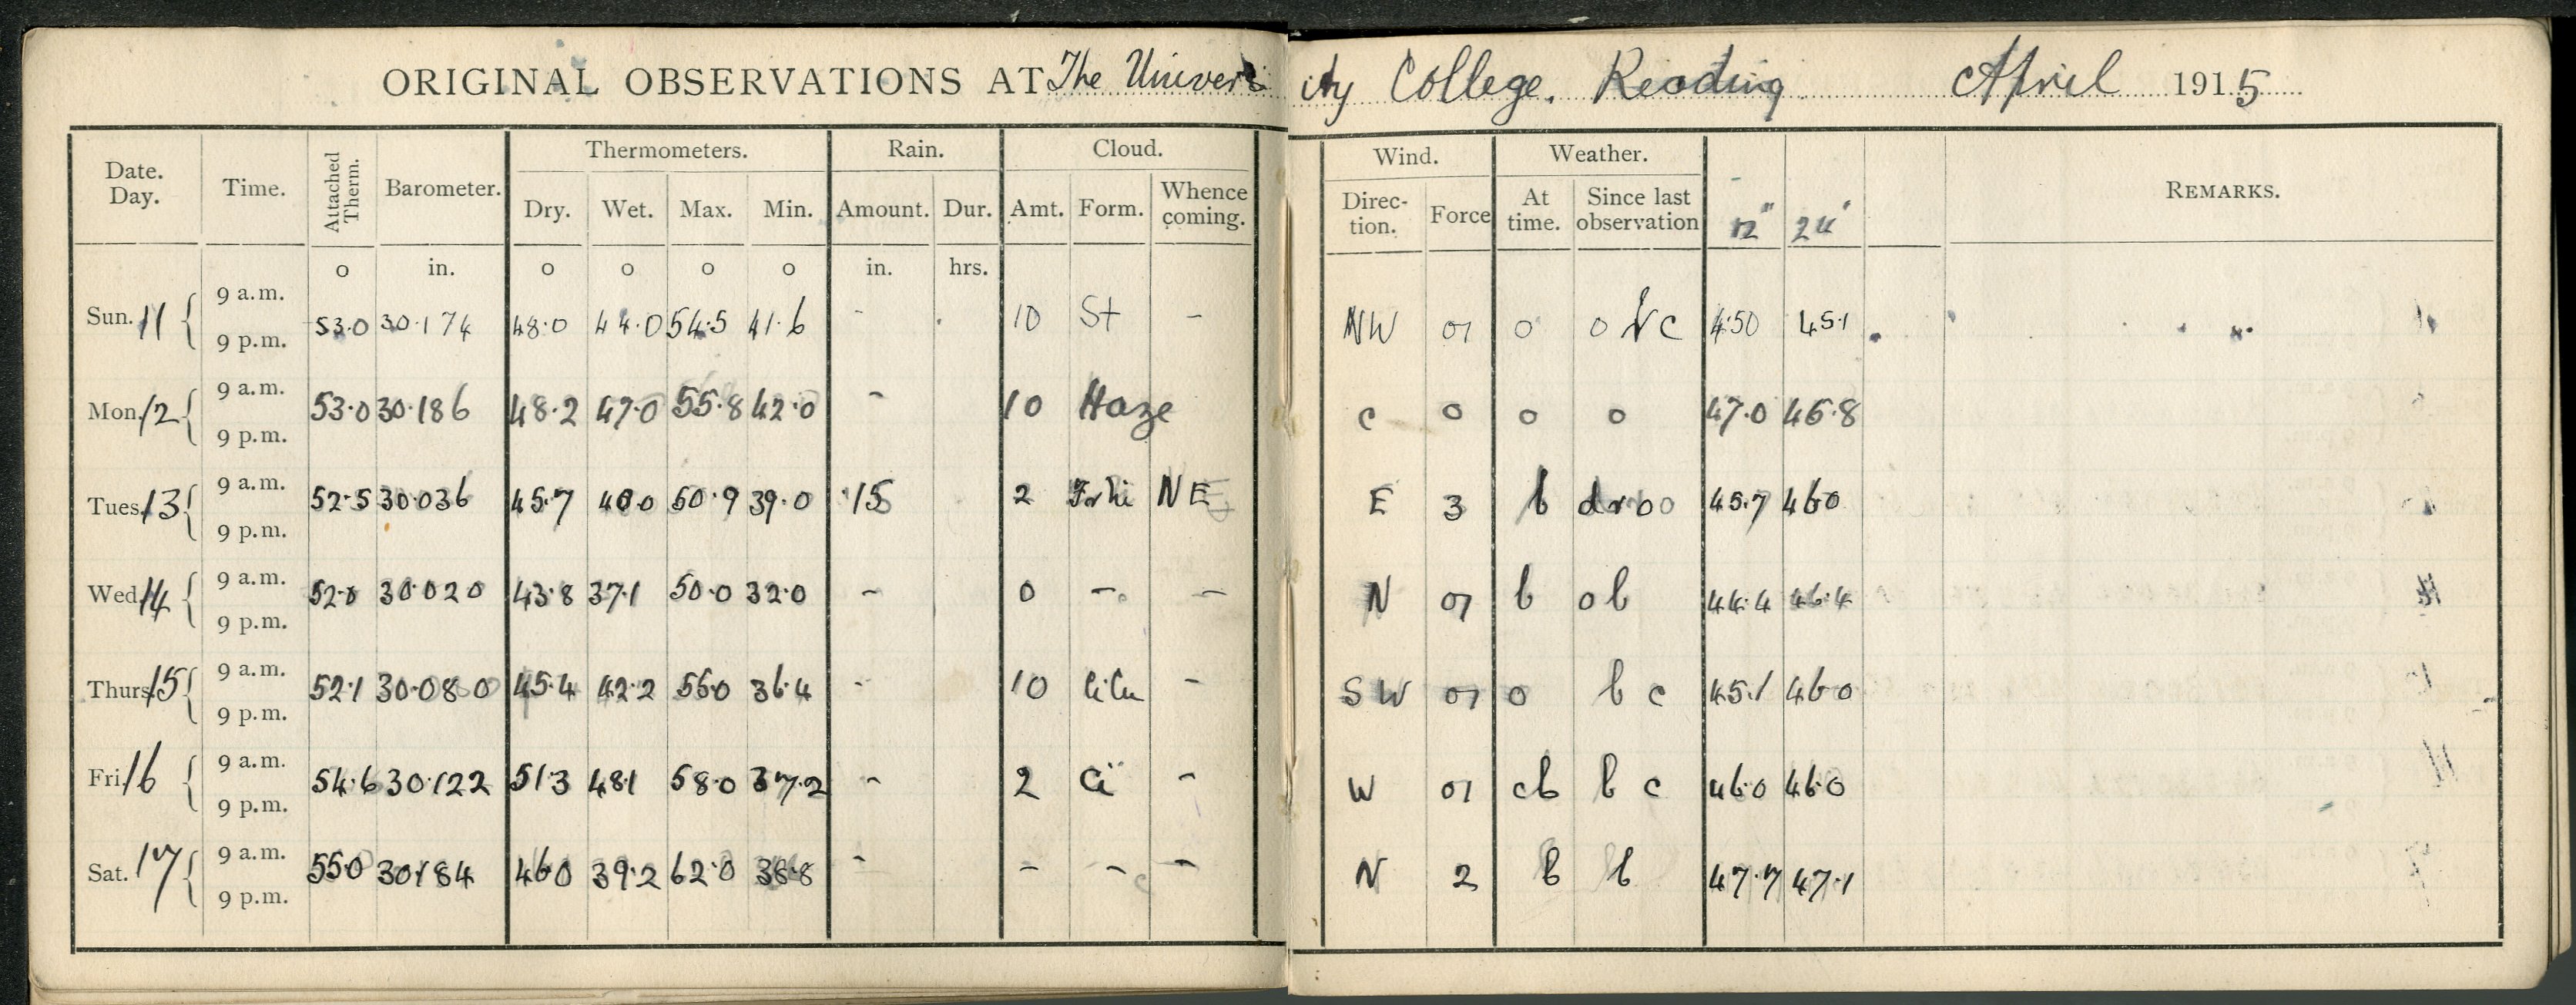 ORIGINAL OBSERVATIONS AT The University College. Reading April 1915
Date. Day. Time. Attached Therm. Barometer. Thermometers. Rain. Cloud. Wind. Weather. REMARKS.
Dry. Wet. Max. Min. Amount. Dur. Amt. Form. Whence coming. Direc- tion. Force At time. Since last observation 12" 24"
o in. o o o o in. hrs.
Sun. 11 9 a.m. 9 p.m. 53.0 30.174 48.0 44.0 54.5 41.6 - 10 St - NW 01 o o b c 45.0 45.1
Mon. 12 9 a.m. 9 p.m. 53.0 30.186 48.2 47.0 55.8 42.0 - 10 Haze c o o o 47.0 45.8
Tues. 13 9 a.m. 9 p.m. 52.5 30.036 45.7 40.0 50.9 39.0 .15 2 NE E 3 b d r o o 45.7 46.0
Wed. 14 9 a.m. 9 p.m. 52.0 30.020 43.8 37.1 50.0 32.0 - 0 - - N 01 b o b 44.4 46.4
Thurs. 15 9 a.m. 9 p.m. 52.1 30.080 45.4 42.2 55.0 36.4 - 10 CiCu - SW 01 o b c 45.1 46.0
Fri. 16 9 a.m. 9 p.m. 54.6 30.122 51.3 48.1 58.0 37.2 - 2 Ci - W 01 cb b c 46.0 46.0
Sat. 17 9 a.m. 9 p.m. 55.0 30.184 46.0 39.2 62.0 38.8 - - - - N 2 b b 47.7 47.1